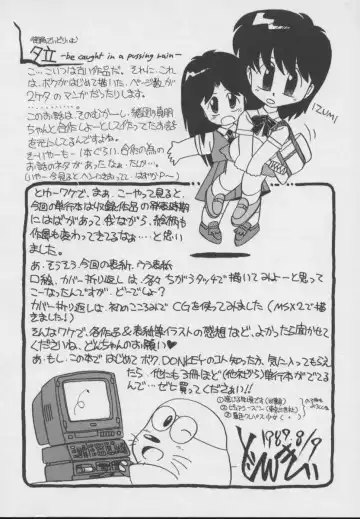 夕立 -be caught in a passing rain-
こ…こいつは古い作品だ。それに、これ
は、ボクがはじめて描いた、ページ数が
2ケタのマンガだったりします。
このお話は、そのむかーし、
ちゃんと合作しよーとして作ってたお話
を元にしてるんですよね。
そーいやーも…1本ぐらい、合作の為の
お話のネタがあったなぁ…たしか…。
IZUMI
とゆーワケで、まぁ、こーやって見ると、
今回の単行本は収録作品の発表時期
にはばがあって我ながら、絵柄も
作風も変わってきてるなぁ…と思い
ました。
あ、そうそう、今回の表紙、ウラ表紙
口絵、カバー折り返しは、各々ちがうタッチで描いてみよーと思って
こーなったんですが、どーでしょ?
カバー折り返しは、初のこころみでCGを使ってみました(MSX2で描
きました!)
そんなワケで、各作品&表紙等イラストの感想など、よかったら聞かせ
てください。どんちゃんのお願い♥
あ、もし、この本ではじめてボク、DONKEYのコト知った方、気に入ってもらえ
たら、他にも3冊ほど(他社から)単行本がでてる
んで…ゼヒ買ってくださぁい!!
1989.8/9
どんきぃ